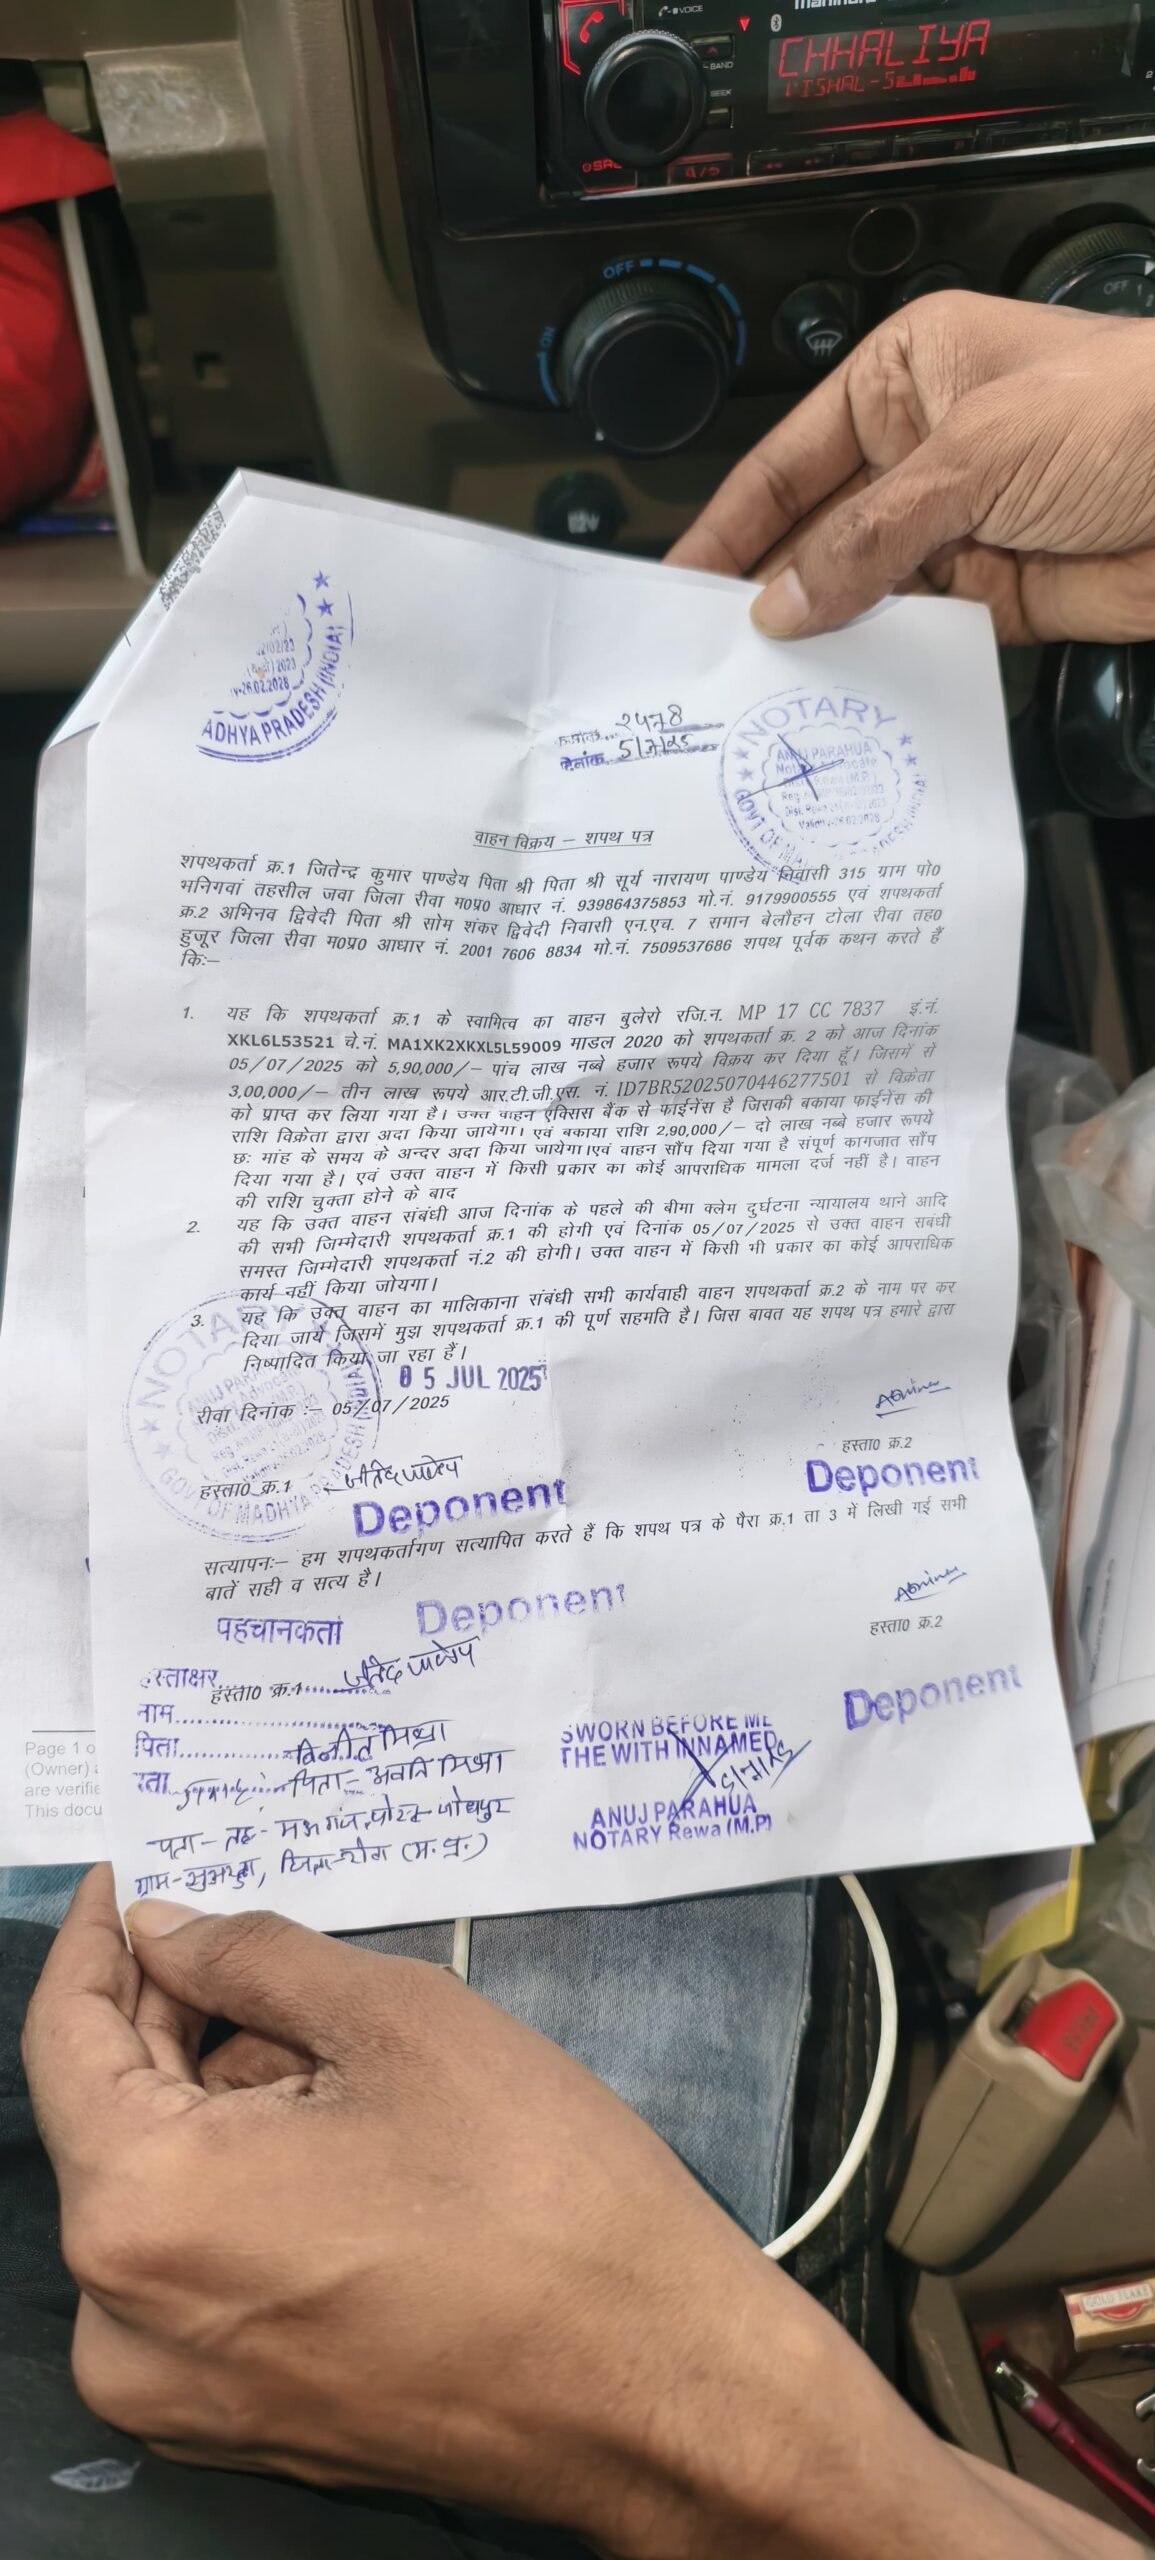 VOICE
CHHALIYA
BAND
SEEK
OFF
OFF 1
12V
ADHYA PRADESH (INDIA)
26.02.2028
2478
दिनांक 5/7/25
NOTARY
ANUJ PARAHUA
वाहन विक्रय – शपथ पत्र
शपथकर्ता क्र.1 जितेन्द्र कुमार पाण्डेय पिता श्री पिता श्री सूर्य नारायण पाण्डेय निवासी 315 ग्राम पो0
भनिगवां तहसील जवा जिला रीवा म0प्र0 आधार नं. 939864375853 मो.नं. 9179900555 एवं शपथकर्ता
क्र.2 अभिनव द्विवेदी पिता श्री सोम शंकर द्विवेदी निवासी एन.एच. 7 समान बेलौहन टोला रीवा तह0
हुजूर जिला रीवा म0प्र0 आधार नं. 2001 7606 8834 मो.नं. 7509537686 शपथ पूर्वक कथन करते हैं
कि:–
1. यह कि शपथकर्ता क्र.1 के स्वामित्व का वाहन बुलेरो रजि.न. MP 17 CC 7837 इं.नं.
XKL6L53521 चे.नं. MA1XK2XKXL5L59009 माडल 2020 को शपथकर्ता क्र. 2 को आज दिनांक
05/07/2025 को 5,90,000/– पांच लाख नब्बे हजार रूपये विक्रय कर दिया हूँ। जिसमें से
3,00,000/– तीन लाख रूपये आर.टी.जी.एस. नं. ID7BR52025070446277501 से विक्रेता
को प्राप्त कर लिया गया है। उक्त वाहन एक्सिस बैंक से फाईनेंस है जिसकी बकाया फाईनेंस की
राशि विक्रेता द्वारा अदा किया जायेगा। एवं बकाया राशि 2,90,000/– दो लाख नब्बे हजार रूपये
छः मांह के समय के अन्दर अदा किया जायेगा।एवं वाहन सौंप दिया गया है संपूर्ण कागजात सौंप
दिया गया है। एवं उक्त वाहन में किसी प्रकार का कोई आपराधिक मामला दर्ज नहीं है। वाहन
की राशि चुक्ता होने के बाद
2. यह कि उक्त वाहन संबंधी आज दिनांक के पहले की बीमा क्लेम दुर्घटना न्यायालय थाने आदि
की सभी जिम्मेदारी शपथकर्ता क्र.1 की होगी एवं दिनांक 05/07/2025 से उक्त वाहन सबंधी
समस्त जिम्मेदारी शपथकर्ता नं.2 की होगी। उक्त वाहन में किसी भी प्रकार का कोई आपराधिक
कार्य नहीं किया जोयगा।
3. यह कि उक्त वाहन का मालिकाना संबंधी सभी कार्यवाही वाहन शपथकर्ता क्र.2 के नाम पर कर
दिया जाये जिसमें मुझ शपथकर्ता क्र.1 की पूर्ण सहमति है। जिस बावत यह शपथ पत्र हमारे द्वारा
निष्पादित किया जा रहा हैं।
05 JUL 2025
रीवा दिनांक :– 05/07/2025
NOTARY
ANUJ PARAHUA
GOVT OF MADHYA PRADESH
हस्ता0 क्र.1 जीतेन्द्र पाण्डेय
Deponent
हस्ता0 क्र.2
Deponent
सत्यापनः– हम शपथकर्तागण सत्यापित करते हैं कि शपथ पत्र के पैरा क्र.1 ता 3 में लिखी गई सभी
बातें सही व सत्य है।
Deponent
पहचानकर्ता
हस्ता0 क्र.2
Deponent
हस्ताक्षर
हस्ता0 क्र.1 जीतेन्द्र पाण्डेय
नाम
पिता मिश्रा
पिता – मिश्रा
पता – तह –
ग्राम – जिला – रीवा (म.प्र.)
SWORN BEFORE ME
THE WITH INNAMED
ANUJ PARAHUA
NOTARY Rewa (M.P)
Page 1 o
(Owner)
are verifie
This docu
PRESS
GOLD FLAKE